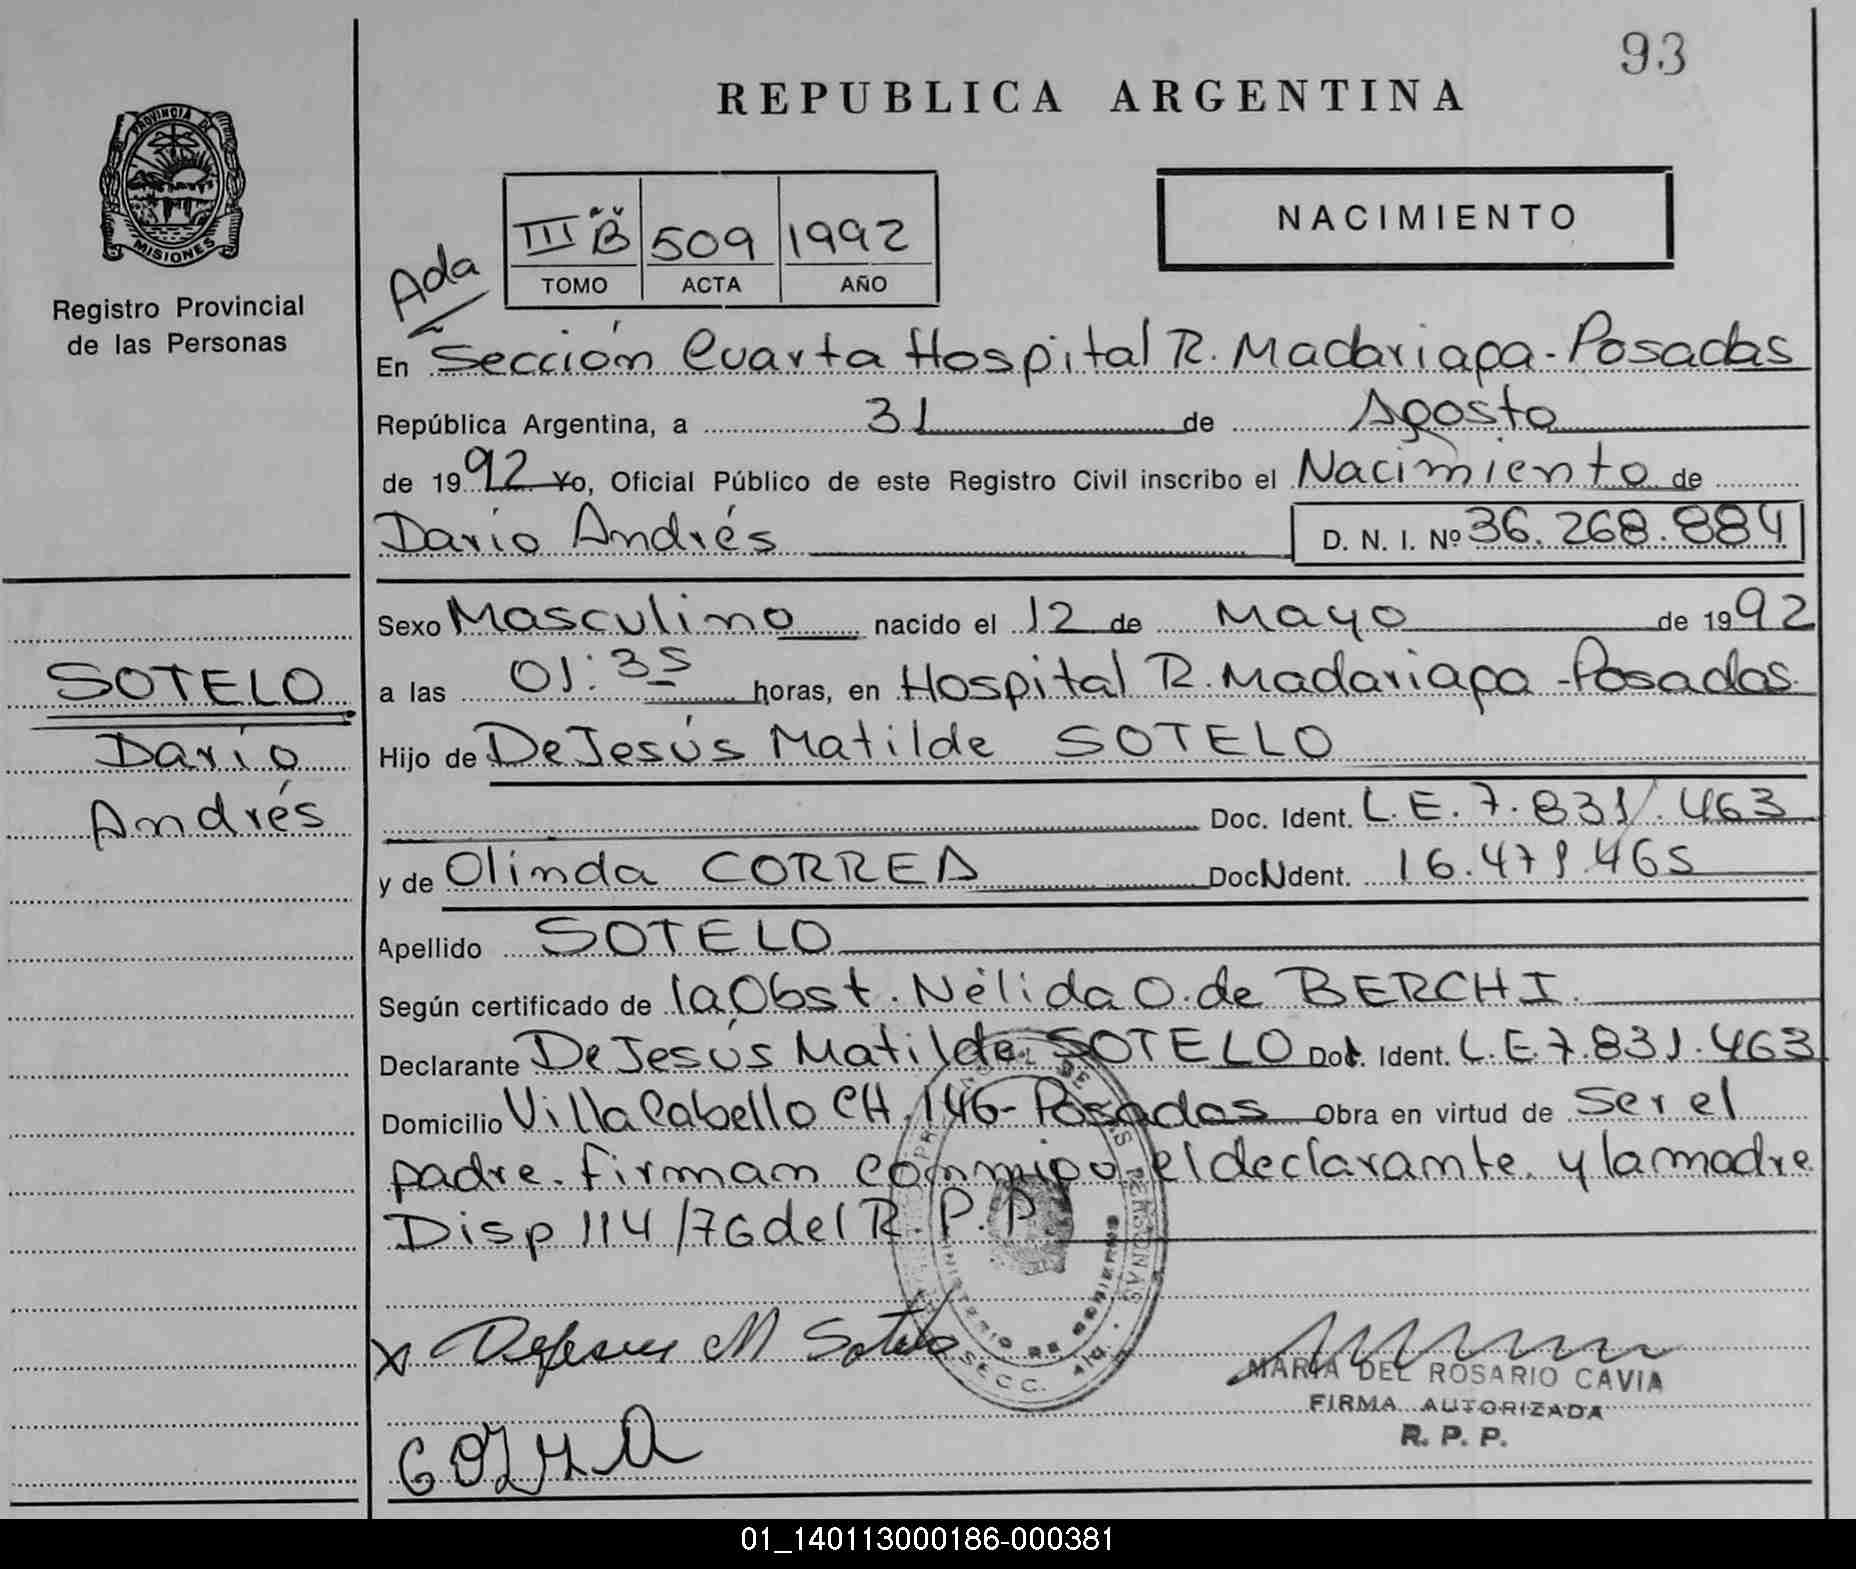 93
REPUBLICA ARGENTINA
PROVINCIA DE
MISIONES
Registro Provincial
de las Personas
Ada
III "B" 509 1992
TOMO ACTA AÑO
NACIMIENTO
En Sección Cuarta Hospital R. Madariaga - Posadas
República Argentina, a 31 de Agosto
de 1992 Yo, Oficial Público de este Registro Civil inscribo el Nacimiento de
Darío Andrés D. N. I. Nº 36.268.884
Sexo Masculino nacido el 12 de Mayo de 1992
SOTELO
Darío
Andrés
a las 01:35 horas, en Hospital R. Madariaga - Posadas.
Hijo de De Jesús Matilde SOTELO
Doc. Ident. L.E. 7.831.463
y de Olinda CORREA Doc N dent. 16.479.465
Apellido SOTELO
Según certificado de la Obst. Nélida O. de BERCHI.
Declarante De Jesús Matilde SOTELO Doc. Ident. L.E. 7.831.463
Domicilio Villa Cabello CH. 146 - Posadas Obra en virtud de ser el
padre. Firman conmigo el declarante y la madre
Disp 114/76 del R. P. P.
MINISTERIO DE GOBIERNO
SECC. 4ta
x Dejesus M Sotelo
MARIA DEL ROSARIO CAVIA
FIRMA AUTORIZADA
R. P. P.
01_140113000186-000381